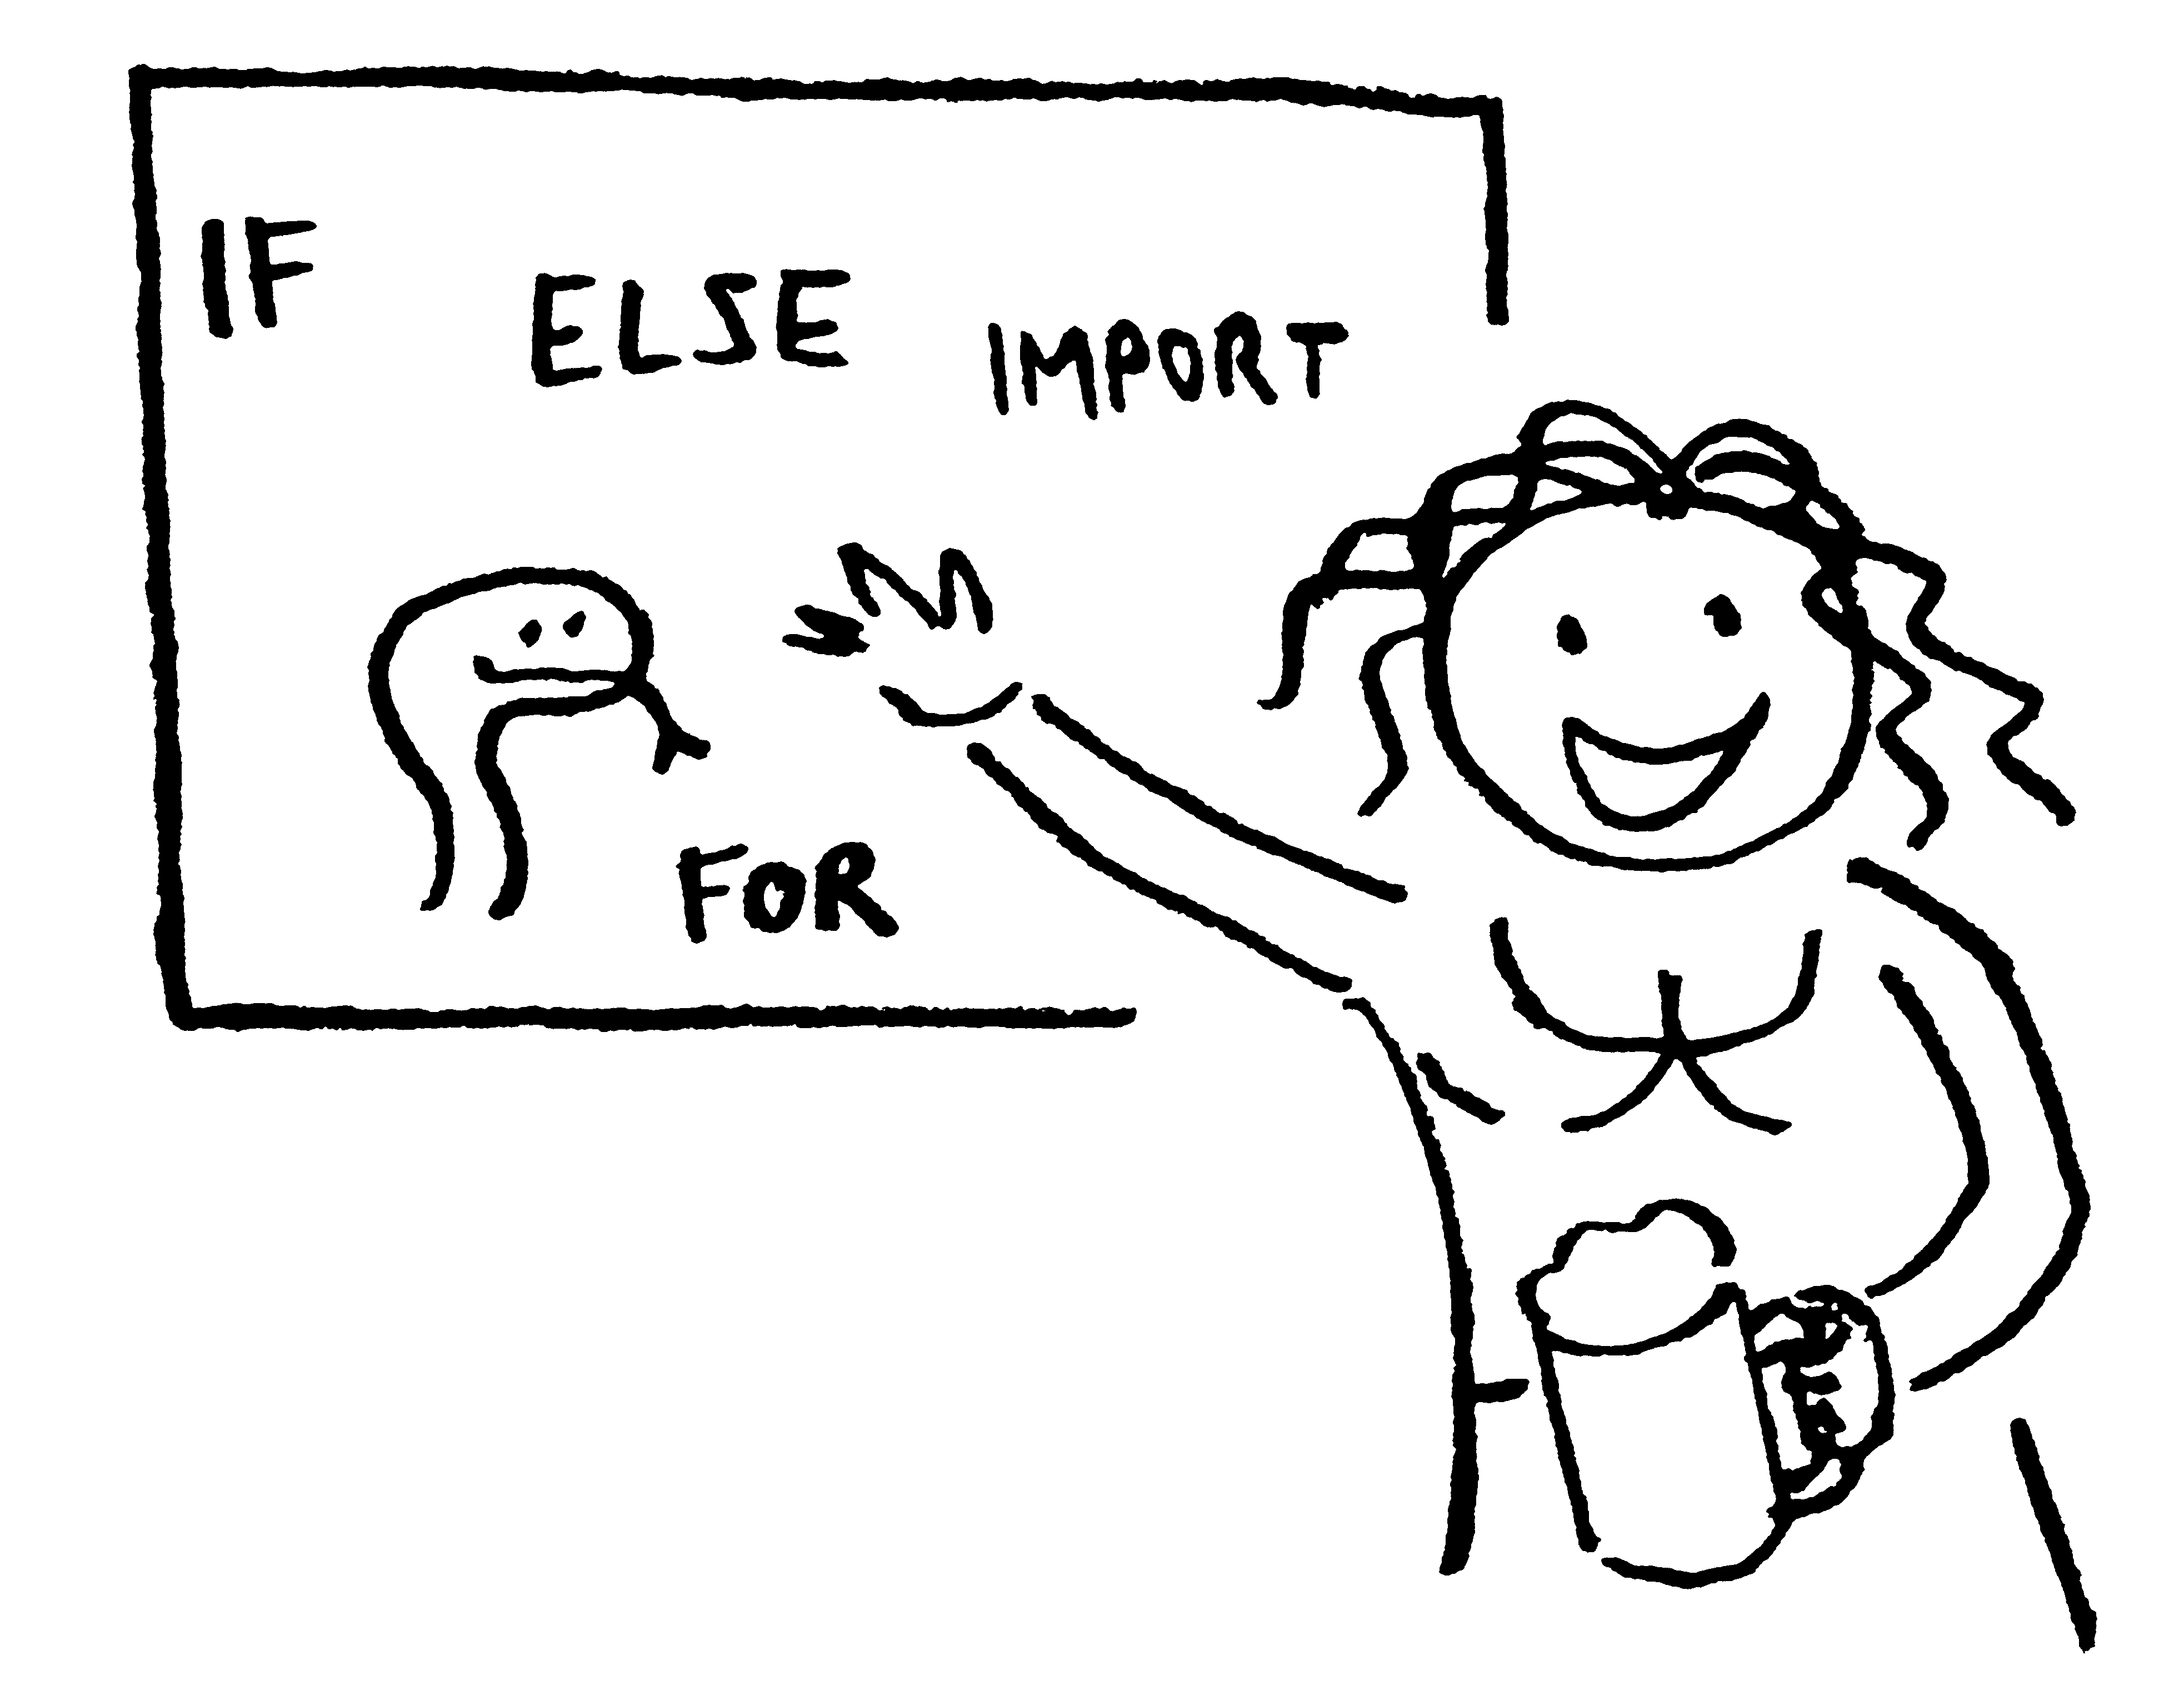 IF
ELSE
IMPORT
FOR